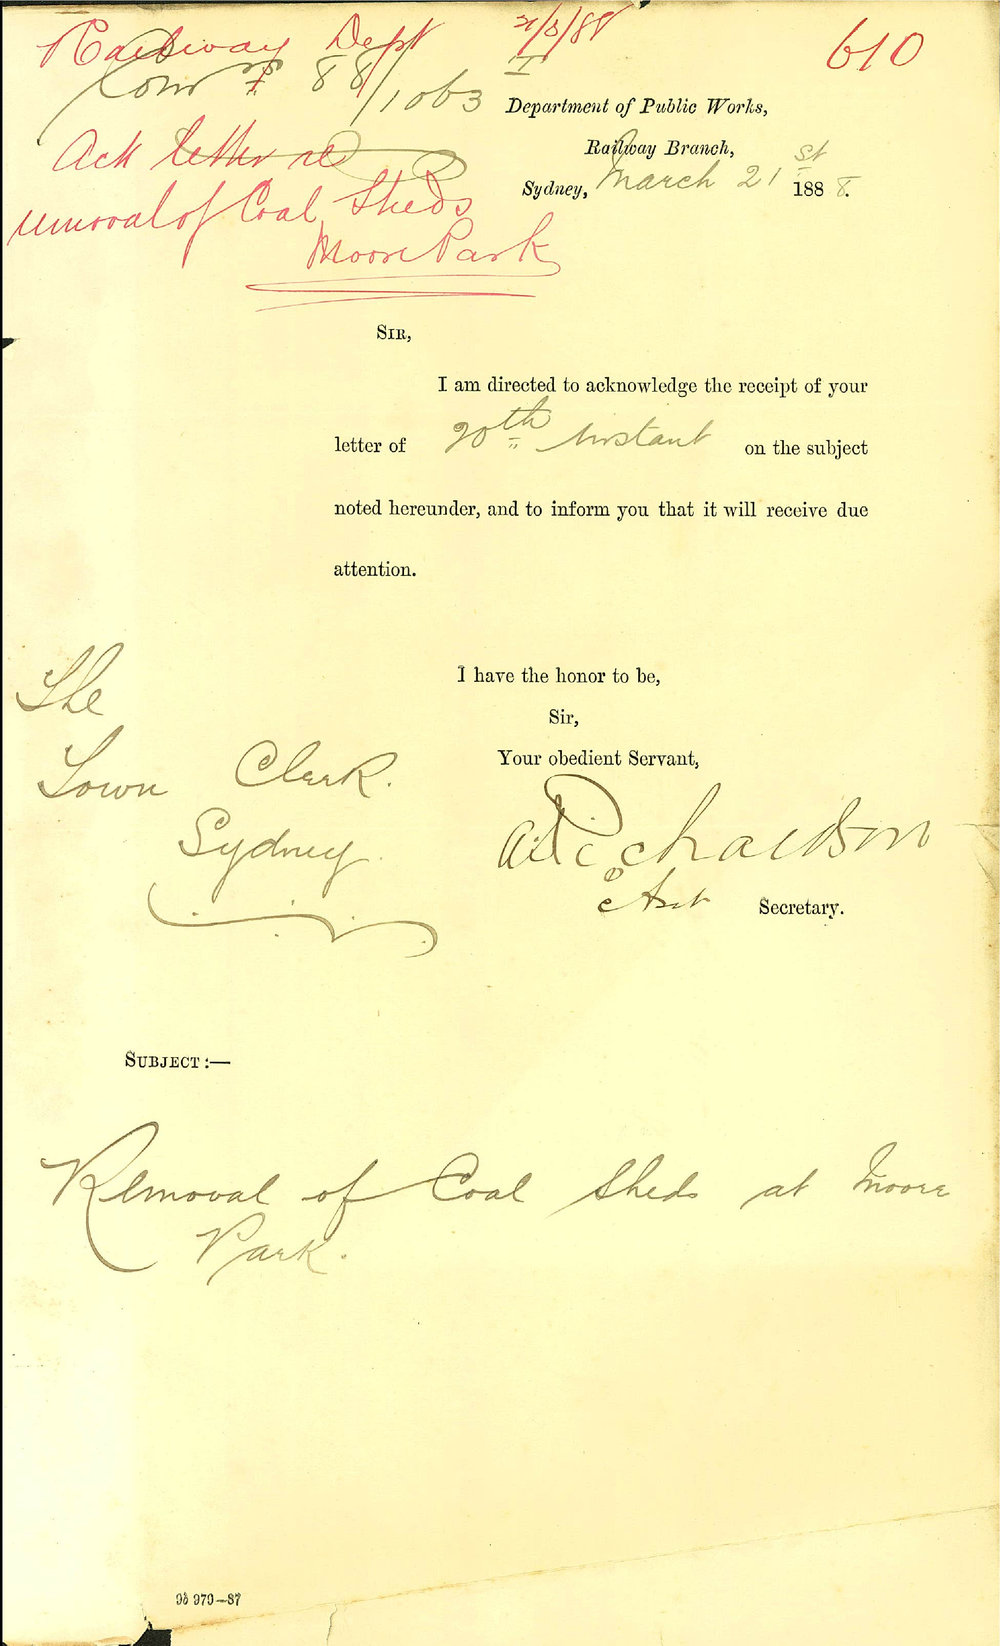 Railway Dept 21/3/88
610
Comr 88/1063
Ack letter re
removal of Coal Sheds
Moore Park
Department of Public Works,
Railway Branch,
Sydney, March 21st 1888.
SIR,
I am directed to acknowledge the receipt of your
letter of 20th instant on the subject
noted hereunder, and to inform you that it will receive due
attention.
I have the honor to be,
Sir,
Your obedient Servant,
Richardson
Secretary.
The
Town Clerk.
Sydney
SUBJECT:—
Removal of Coal Sheds at Moore
Park.
979—87